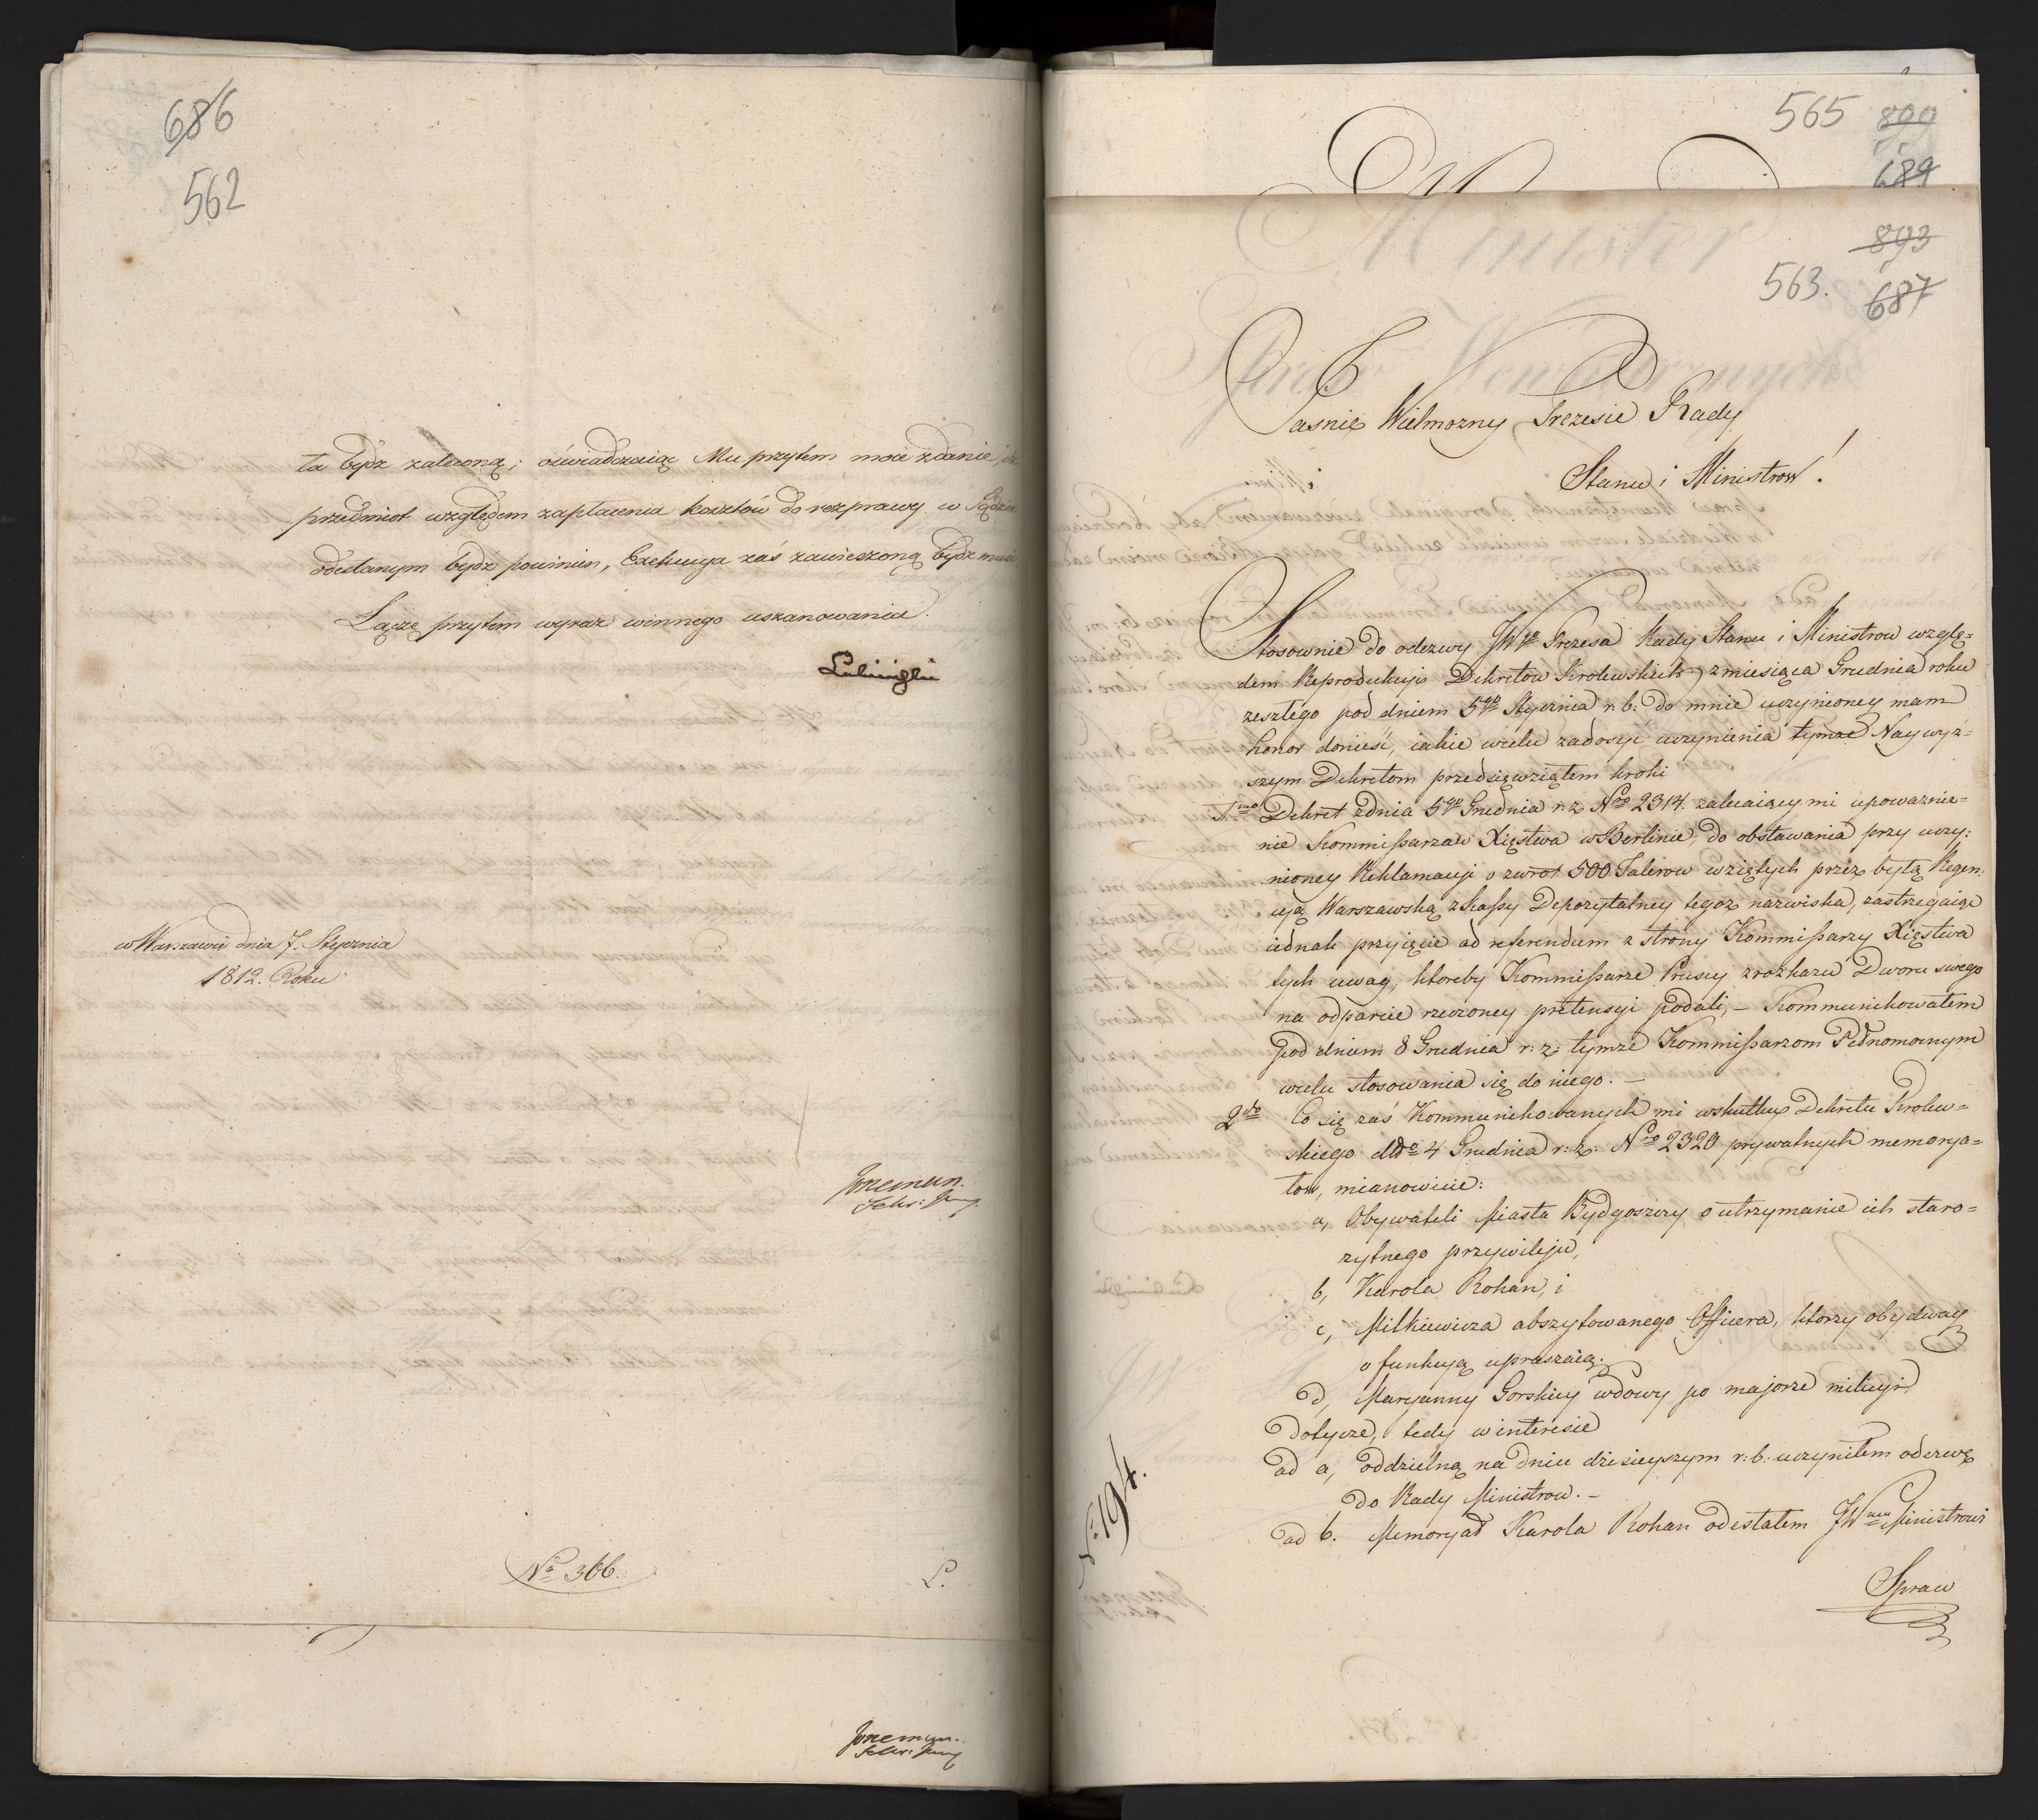 686
562
ta bydz zaleconą; oświadczaiąc Mu przytem moie zdanie, że
przedmiot względem zapłacenia kosztów do rozprawy w Sądzie
odesłanym bydz powinien, Exekucya zaś zawieszoną bydz musi
Łączę przytem wyraz winnego uszanowania.
Łubieński
w Warszawie dnia 7. Stycznia
1812. Roku
Sekr: Jny.
No 366.
L.
Sekr: Jny
565 899
689
893
563. 687
Minister
Jasnie Wielmozny Prezesie Rady
Stanu i Ministrow!
Stosownie do odezwy JWgo Prezesa Rady Stanu i Ministrow wzglę=
dem Reprodukcji Dekretow Krolewskich z miesiąca Grudnia roku
zeszłego pod dniem 5go Stycznia r: b: do mnie uczynioney mam
honor donieść, iakie w celu zadosyć uczynienia tymze Naywyż=
szym Dekretom przedsięwziąłem kroki
1mo Dekret z dnia 5go Grudnia r: z. Nro 2314. zalecaiący mi upowaznie=
nie Kommissarzow Xięstwa w Berlinie, do obstawania przy uczy:
nioney Reklamacyi o zwrot 500 Talerow wziętych przez byłą Regen:
cyą Warszawską z Kassy Depozytalney tegoz nazwiska, zastrzegaiąc
iednak przyięcie ad referendum z strony Kommissarzy Xięstwa
tych uwag, ktoreby Kommissarze Pruscy z rozkazu Dworu swego
na odparcie rzeczoney pretensyi podali, – Kommunikowałem
pod dniem 8 Grudnia r: z: tymze Kommissarzom Pełnomocnym
w celu stosowania się do niego. –
2do Co się zaś Kommunikowanych mi w skutku Dekretu Krolew=
skiego ddo 4 Grudnia r: z: Nro 2320 prywatnych memorya=
łow, mianowicie:
a, Obywateli Miasta Bydgoszczy o utrzymanie ich staro=
zytnego przywileju,
b, Karola Rohan, i
c, Milkiewicza abszytowanego Officera, ktorzy obydway
o funkcyą upraszaią.
d, Maryanny Gorskiey wdowy po majorze milicyi,
dotycze, tedy w interesie
ad a, oddzielną na dniu dzisieyszym r: b: uczyniłem odezwę
do Rady Ministrow. –
ad b. Memoryał Karola Rohan odesłałem JWmu Ministrowi
Spraw
N: 194.